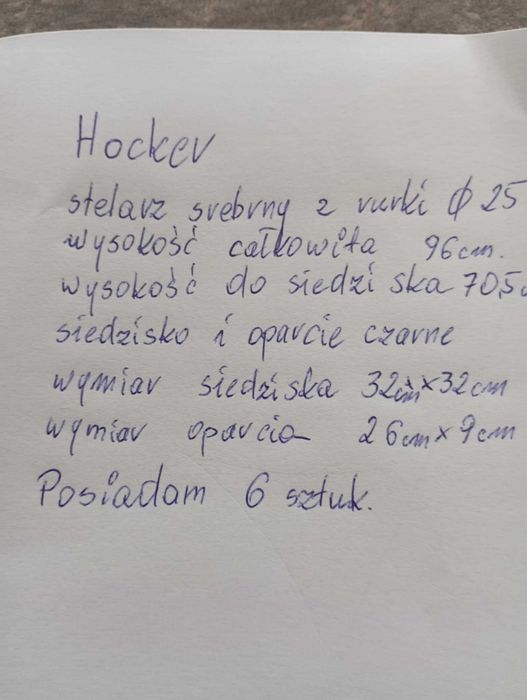 Hocker
stelarz srebrny z rurki Ø 25
wysokość całkowita 96cm.
wysokość do siedziska 70,5
siedzisko i oparcie czarne
wymiar siedziska 32cm×32cm
wymiar oparcia 26cm×9cm
Posiadam 6 sztuk.